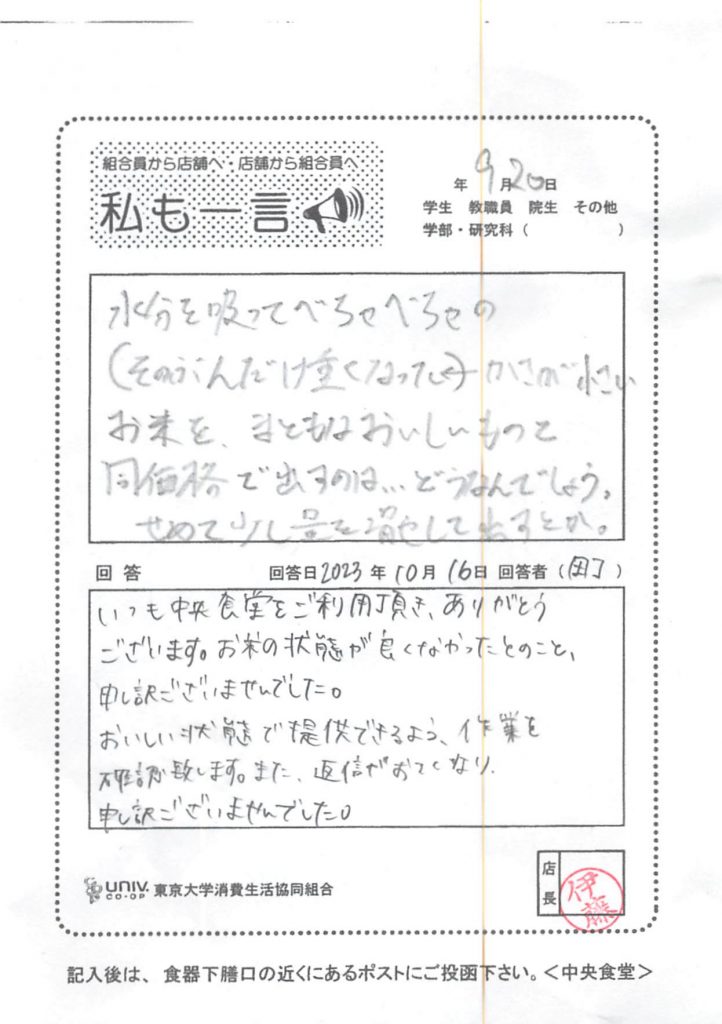 組合員から店舗へ・店舗から組合員へ
私も一言
年 9月20日
学生 教職員 院生 その他
学部・研究科（ ）
水分を吸ってべちゃべちゃの
(そのぶんだけ重くなって) かさが小さい
お米を、まともなおいしいものと
同価格で出すのは…どうなんでしょう。
せめて少し量を増やして出すとか。
回答 回答日2023年10月16日 回答者（田丁）
いつも中央食堂をご利用頂き、ありがとう
ございます。お米の状態が良くなかったとのこと、
申し訳ございませんでした。
おいしい状態で提供できるよう、作業を
確認致します。また、返信がおそくなり、
申し訳ございませんでした。
店長
伊藤
UNIV.
CO-OP 東京大学消費生活協同組合
記入後は、食器下膳口の近くにあるポストにご投函下さい。＜中央食堂＞